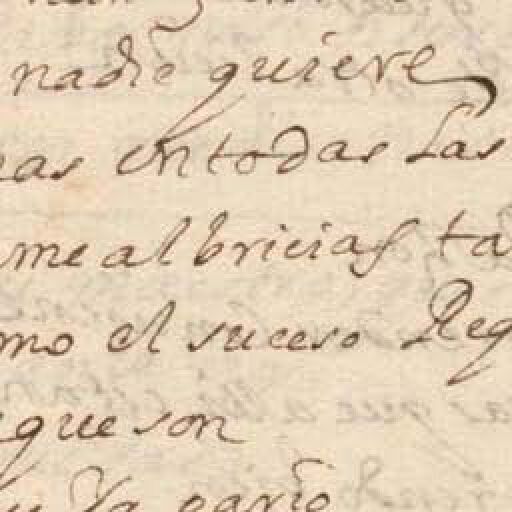 nadie quiere
eas en todas Las
me albricias ta
mo el suceso Reg
que son
Ya pario